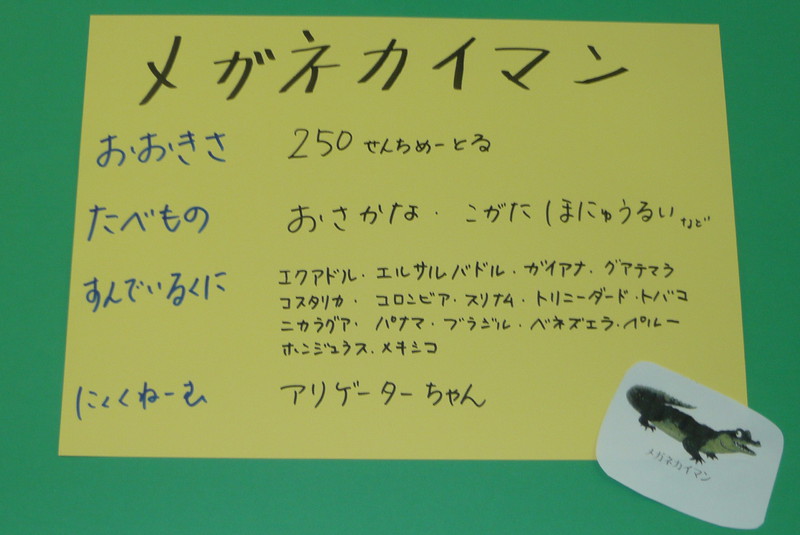 メガネカイマン
おおきさ 250 せんちめーとる
たべもの おさかな・こがたほにゅうるい など
すんでいるくに エクアドル・エルサルバドル・ガイアナ・グアテマラ
コスタリカ・コロンビア・スリナム・トリニーダード・トバコ
ニカラグア・パナマ・ブラジル・ベネズエラ・ペルー
ホンジュラス・メキシコ
にっくねーむ アリゲーターちゃん
メガネカイマン